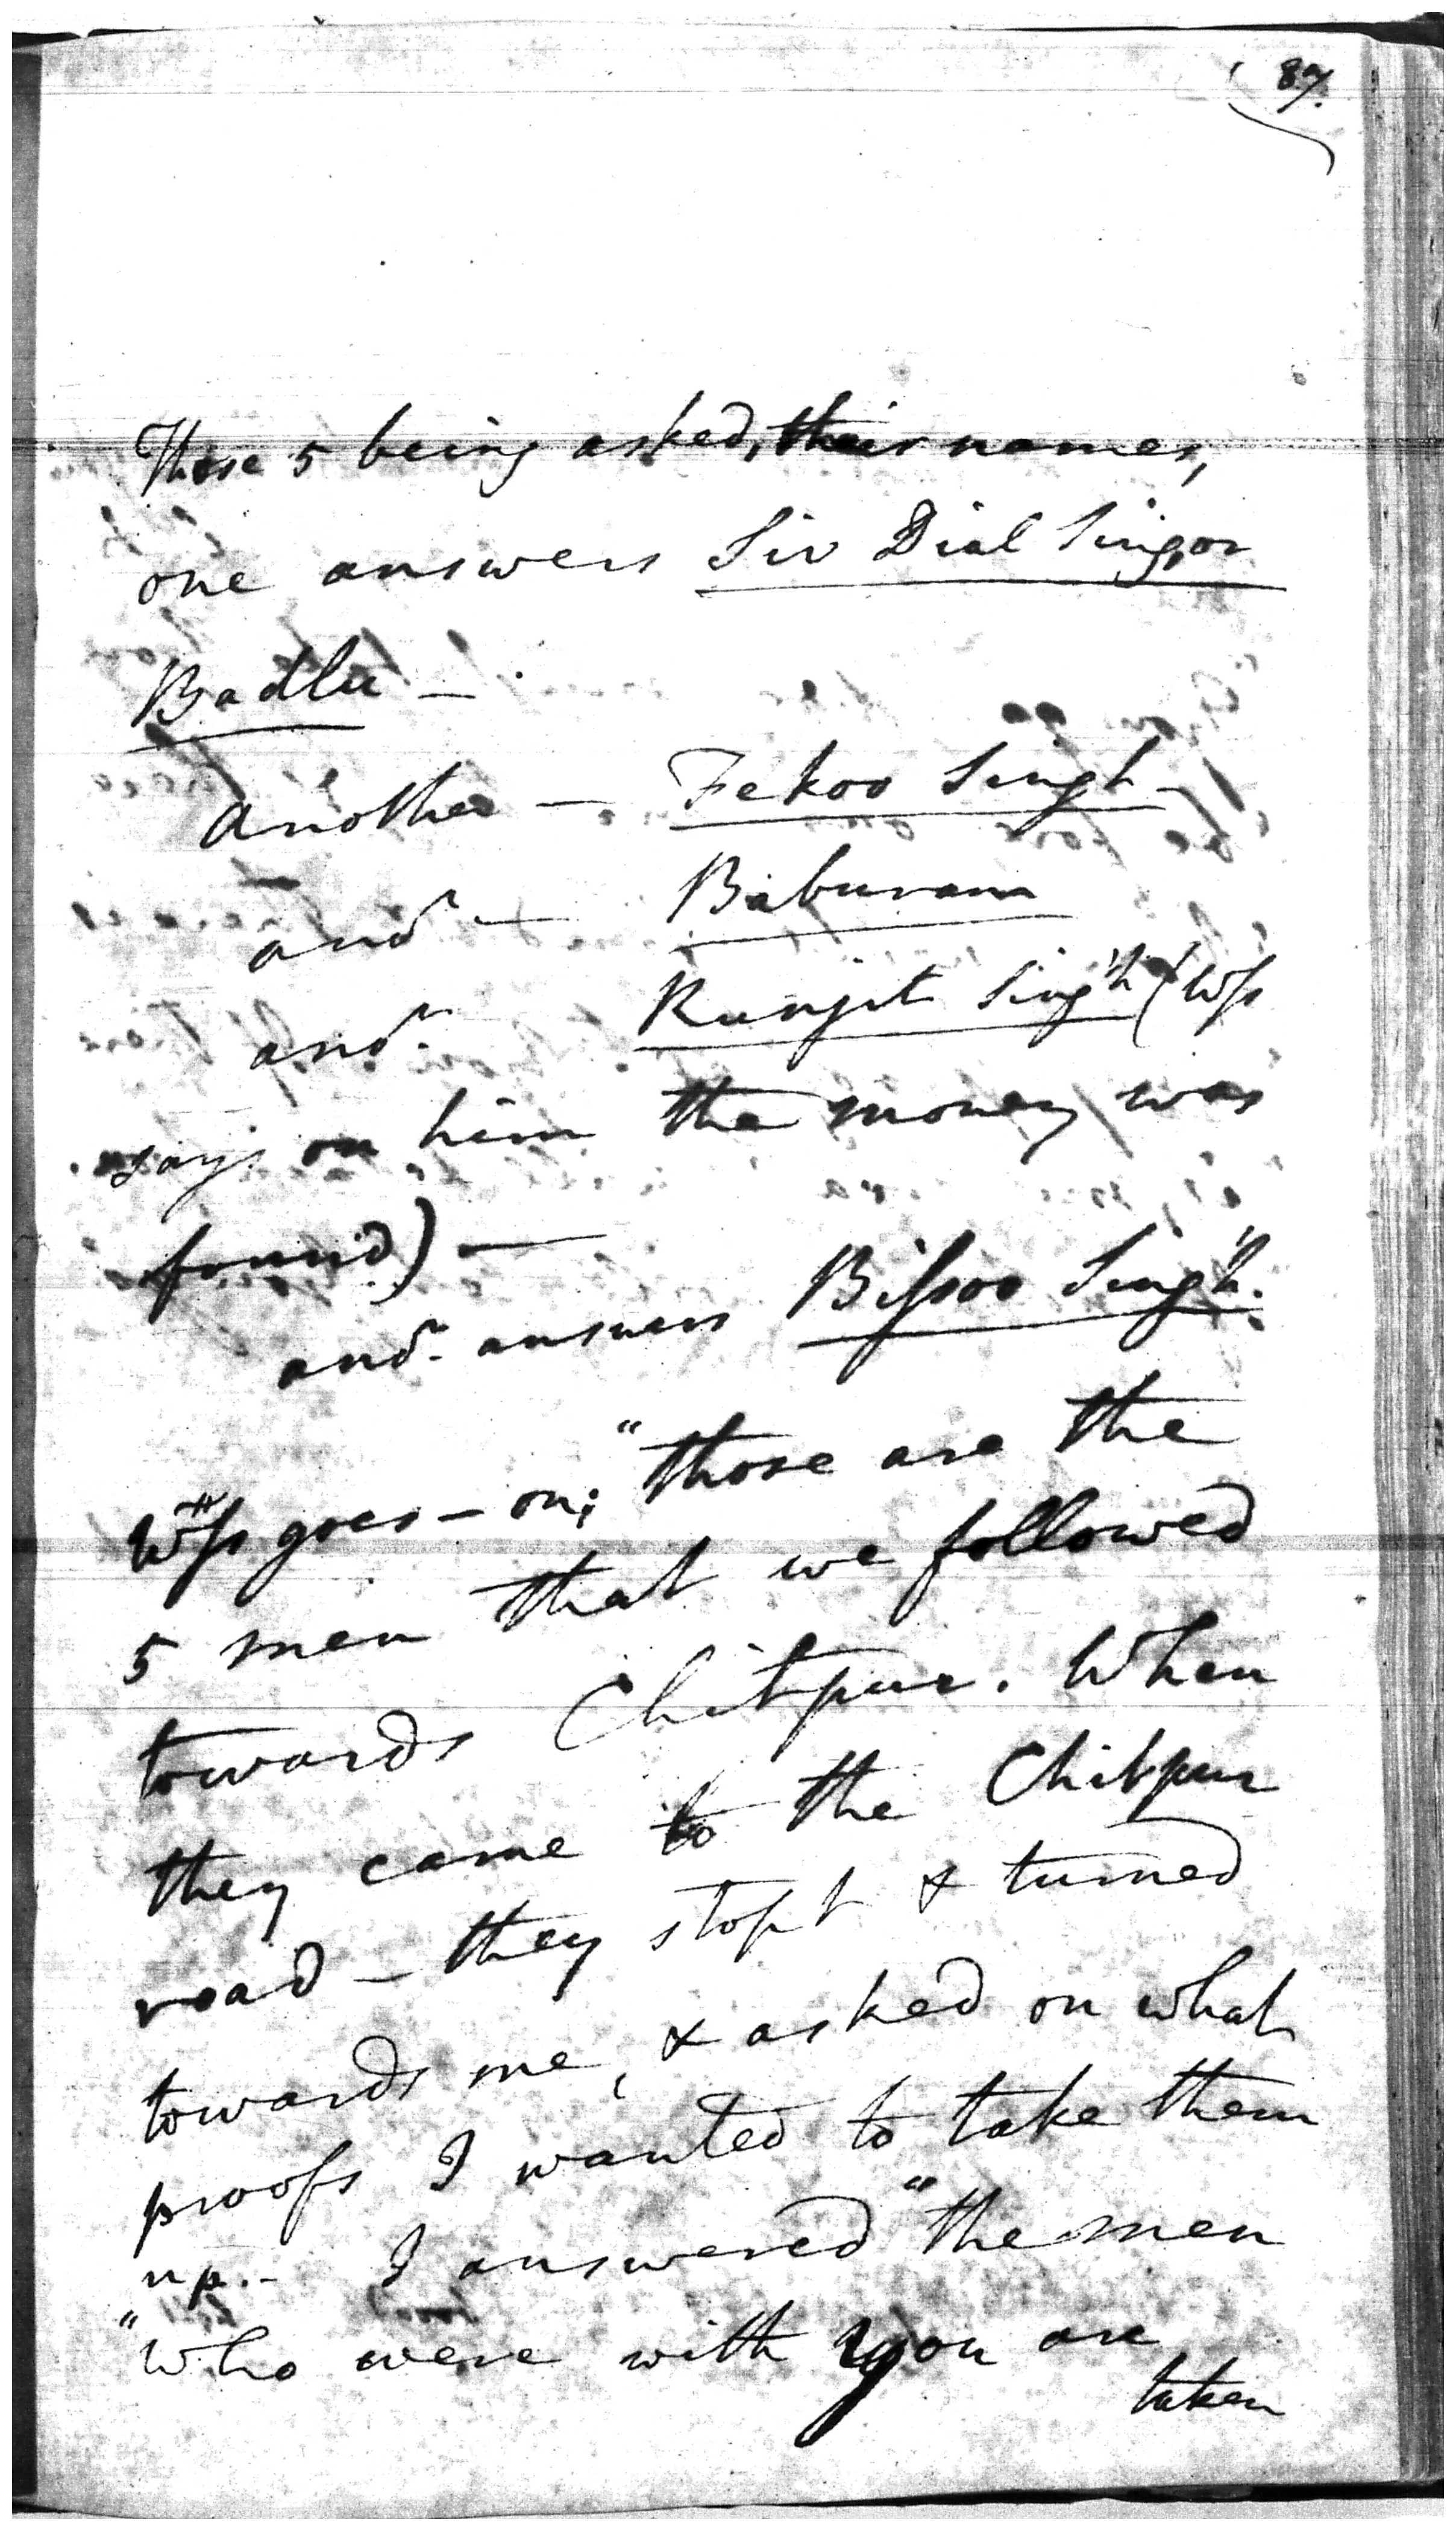 87.
These 5 being asked, their names,
one answers Siv Dial Sing, or
Badlu —
another — Fekoo Singh —
anor — Baburam
anor. Runjit Singh (Wss
says on him the money was
found) —
anor. answers Bissoo Singh.
Wss goes - on; "those are the
5 men that we followed
towards Chitpur. When
they came to the Chitpur
road — they stopt & turned
towards me, & asked on what
proofs I wanted to take them
up. - I answered "the men
"who were with you are
taken